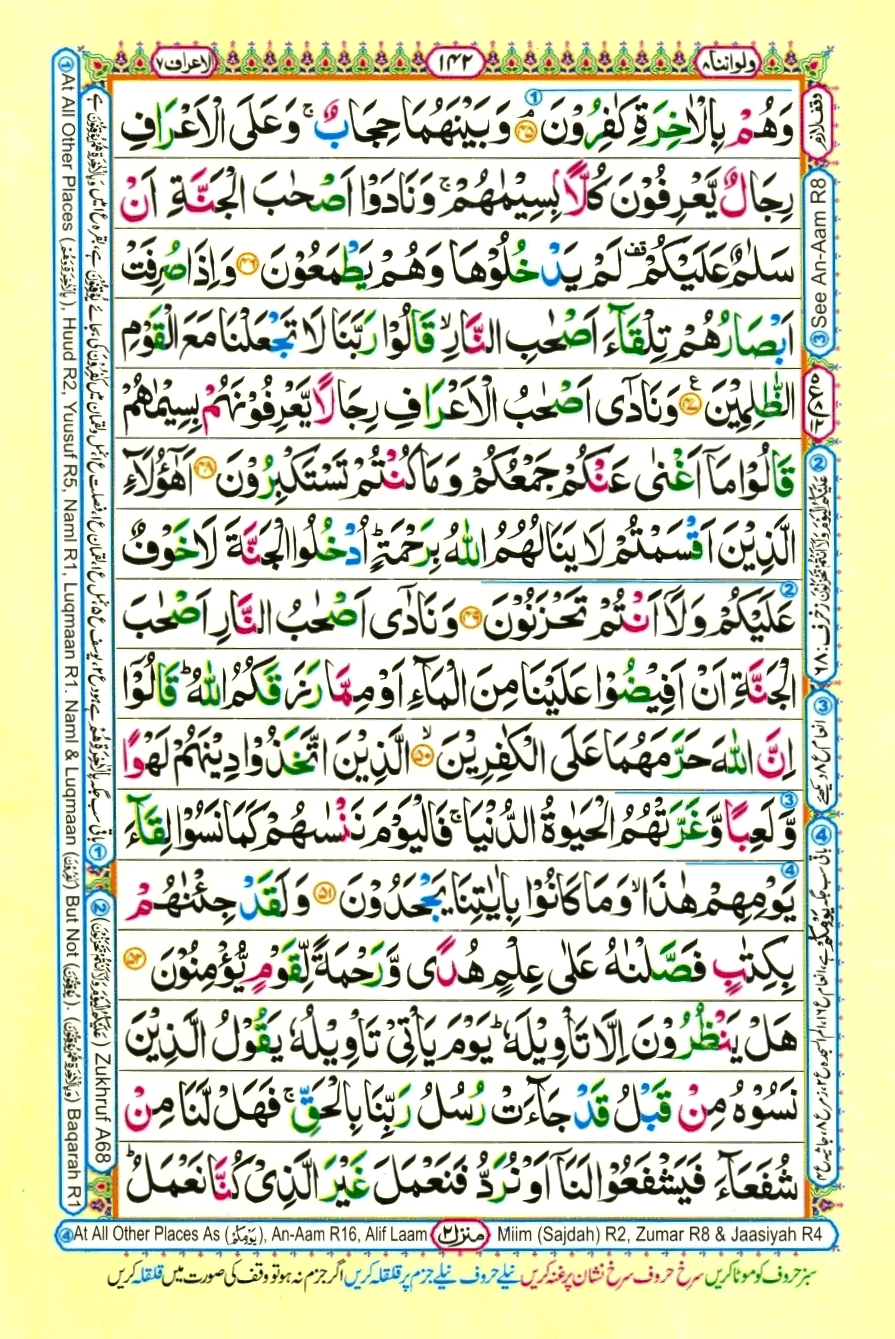 ولواننا ٨
١٤٢
الاعراف ٧
وَهُمْ بِالْاٰخِرَةِ كٰفِرُوْنَ ۘ ﴿۴۵﴾ وَبَيْنَهُمَا حِجَابٌ ۚ وَعَلَى الْاَعْرَافِ
رِجَالٌ يَّعْرِفُوْنَ كُلًّۢا بِسِيْمٰىهُمْ ۚ وَنَادَوْا اَصْحٰبَ الْجَنَّةِ اَنْ
سَلٰمٌ عَلَيْكُمْ ۣ لَمْ يَدْخُلُوْهَا وَهُمْ يَطْمَعُوْنَ ﴿۴۶﴾ وَاِذَا صُرِفَتْ
اَبْصَارُهُمْ تِلْقَآءَ اَصْحٰبِ النَّارِ ۙ قَالُوْا رَبَّنَا لَا تَجْعَلْنَا مَعَ الْقَوْمِ
الظّٰلِمِيْنَ ﴿۴۷﴾ وَنَادٰٓى اَصْحٰبُ الْاَعْرَافِ رِجَالًا يَّعْرِفُوْنَهُمْ بِسِيْمٰىهُمْ
قَالُوْا مَآ اَغْنٰى عَنْكُمْ جَمْعُكُمْ وَمَا كُنْتُمْ تَسْتَكْبِرُوْنَ ﴿۴۸﴾ اَهٰٓؤُلَآءِ
الَّذِيْنَ اَقْسَمْتُمْ لَا يَنَالُهُمُ اللّٰهُ بِرَحْمَةٍ ؕ اُدْخُلُوا الْجَنَّةَ لَا خَوْفٌ
عَلَيْكُمْ وَلَآ اَنْتُمْ تَحْزَنُوْنَ ﴿۴۹﴾ وَنَادٰٓى اَصْحٰبُ النَّارِ اَصْحٰبَ
الْجَنَّةِ اَنْ اَفِيْضُوْا عَلَيْنَا مِنَ الْمَآءِ اَوْ مِمَّا رَزَقَكُمُ اللّٰهُ ؕ قَالُوْٓا
اِنَّ اللّٰهَ حَرَّمَهُمَا عَلَى الْكٰفِرِيْنَ ۙ ﴿۵۰﴾ الَّذِيْنَ اتَّخَذُوْا دِيْنَهُمْ لَهْوًا
وَّلَعِبًا وَّغَرَّتْهُمُ الْحَيٰوةُ الدُّنْيَا ۚ فَالْيَوْمَ نَنْسٰىهُمْ كَمَا نَسُوْا لِقَآءَ
يَوْمِهِمْ هٰذَا ۙ وَمَا كَانُوْا بِاٰيٰتِنَا يَجْحَدُوْنَ ﴿۵۱﴾ وَلَقَدْ جِئْنٰهُمْ
بِكِتٰبٍ فَصَّلْنٰهُ عَلٰى عِلْمٍ هُدًى وَّرَحْمَةً لِّقَوْمٍ يُّؤْمِنُوْنَ ﴿۵۲﴾
هَلْ يَنْظُرُوْنَ اِلَّا تَاْوِيْلَهٗ ؕ يَوْمَ يَاْتِيْ تَاْوِيْلُهٗ يَقُوْلُ الَّذِيْنَ
نَسُوْهُ مِنْ قَبْلُ قَدْ جَآءَتْ رُسُلُ رَبِّنَا بِالْحَقِّ ۚ فَهَلْ لَّنَا مِنْ
شُفَعَآءَ فَيَشْفَعُوْا لَنَآ اَوْ نُرَدُّ فَنَعْمَلَ غَيْرَ الَّذِيْ كُنَّا نَعْمَلُ ؕ
وقف لازم
③ See An-Aam R8
② عَلَيْكُمُ الْيَوْمَ وَلَآ اَنْتُمْ تَحْزَنُوْنَ زخرف: ٦٨
③ انعام ع ٨ دیکھئے
① At All Other Places (بِالْاٰخِرَةِ هُمْ), Huud R2, Yuusuf R5, Naml R1, Luqmaan R1. Naml & Luqmaan (كٰفِرُوْنَ) But Not (يُوْقِنُوْنَ). (وَبِالْاٰخِرَةِ هُمْ يُوْقِنُوْنَ) Baqarah R1
② (عَلَيْكُمُ الْيَوْمَ وَلَآ اَنْتُمْ تَحْزَنُوْنَ) Zukhruf A68
④ At All Other Places As (يَوْمِكُمْ), An-Aam R16, Alif Laam
منزل ٢
Miim (Sajdah) R2, Zumar R8 & Jaasiyah R4
سبز حروف کو موٹا کریں سرخ حروف سرخ نشان پر غنہ کریں نیلے حروف نیلے جزم پر قلقلہ کریں اگر جزم نہ ہو تو وقف کی صورت میں قلقلہ کریں